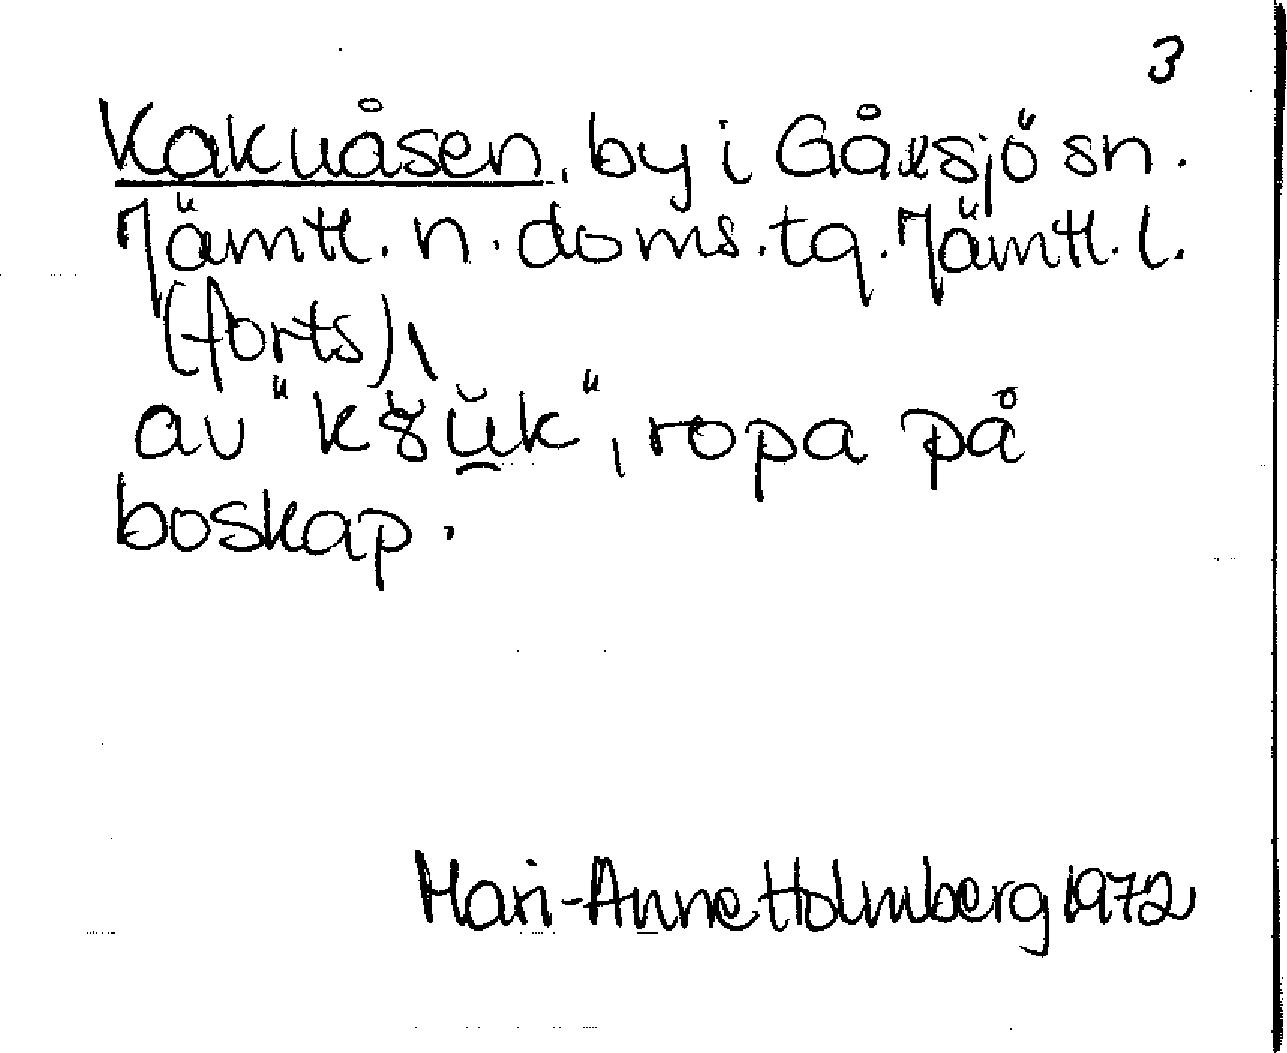 3
Kakuåsen, by i Gåxsjö sn.
Jämtl. n. doms. tg. Jämtl. l.
(forts),
av "
", ropa på
boskap.
Mari-Anne Holmberg 1972